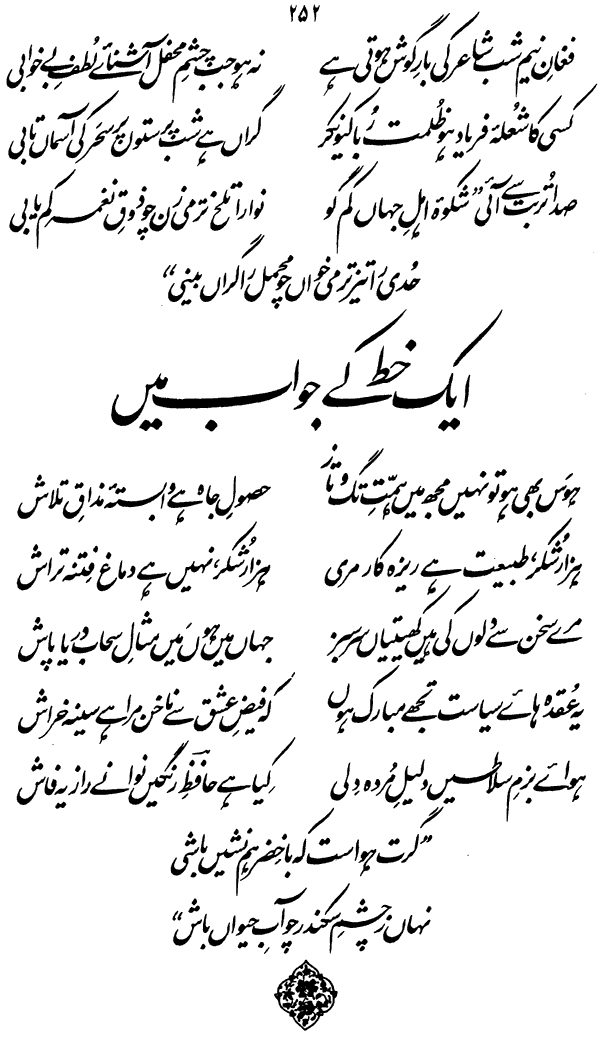 ۲۵۲
فغانِ نیم شب شاعر کی بارِ گوش ہوتی ہے نہ ہو جب چشمِ محفل آشنائے لُطفِ بے خوابی
کسی کا شُعلۂ فریاد ہو ظُلمت رُبا کیونکر گراں ہے شب پرستوں پر سحَر کی آسماں تابی
صدا تُربت سے آئی ”شکوۂ اہلِ جہاں کم گو نوارا تلخ ترمی زن چو ذوقِ نغمہ کم یابی
حُدی را تیز ترمی خواں چو محمل را گراں بینی“
ایک خط کے جواب میں
ہوَس بھی ہو تو نہیں مجھ میں ہمّتِ تگ و تاز حصولِ جاہ ہے وابستۂ مذاقِ تلاش
ہزار شُکر، طبیعت ہے ریزہ کار مری ہزار شُکر، نہیں ہے دماغ فِتنہ تراش
مرے سخن سے دلوں کی ہیں کھیتیاں سرسبز جہاں میں ہوں مَیں مثالِ سحاب دریا پاش
یہ عُقدہ ہائے سیاست تجھے مبارک ہوں کہ فیضِ عشق سے ناخن مرا ہے سینہ خراش
ہوائے بزمِ سلاطیں دلیلِ مُردہ دِلی کِیا ہے حافظؔ رنگیں نوا نے راز یہ فاش
”گرت ہوا ست کہ با خِضر ہم نشیں باشی
نہاں ز چشمِ سکندر چو آبِ حیواں باش“